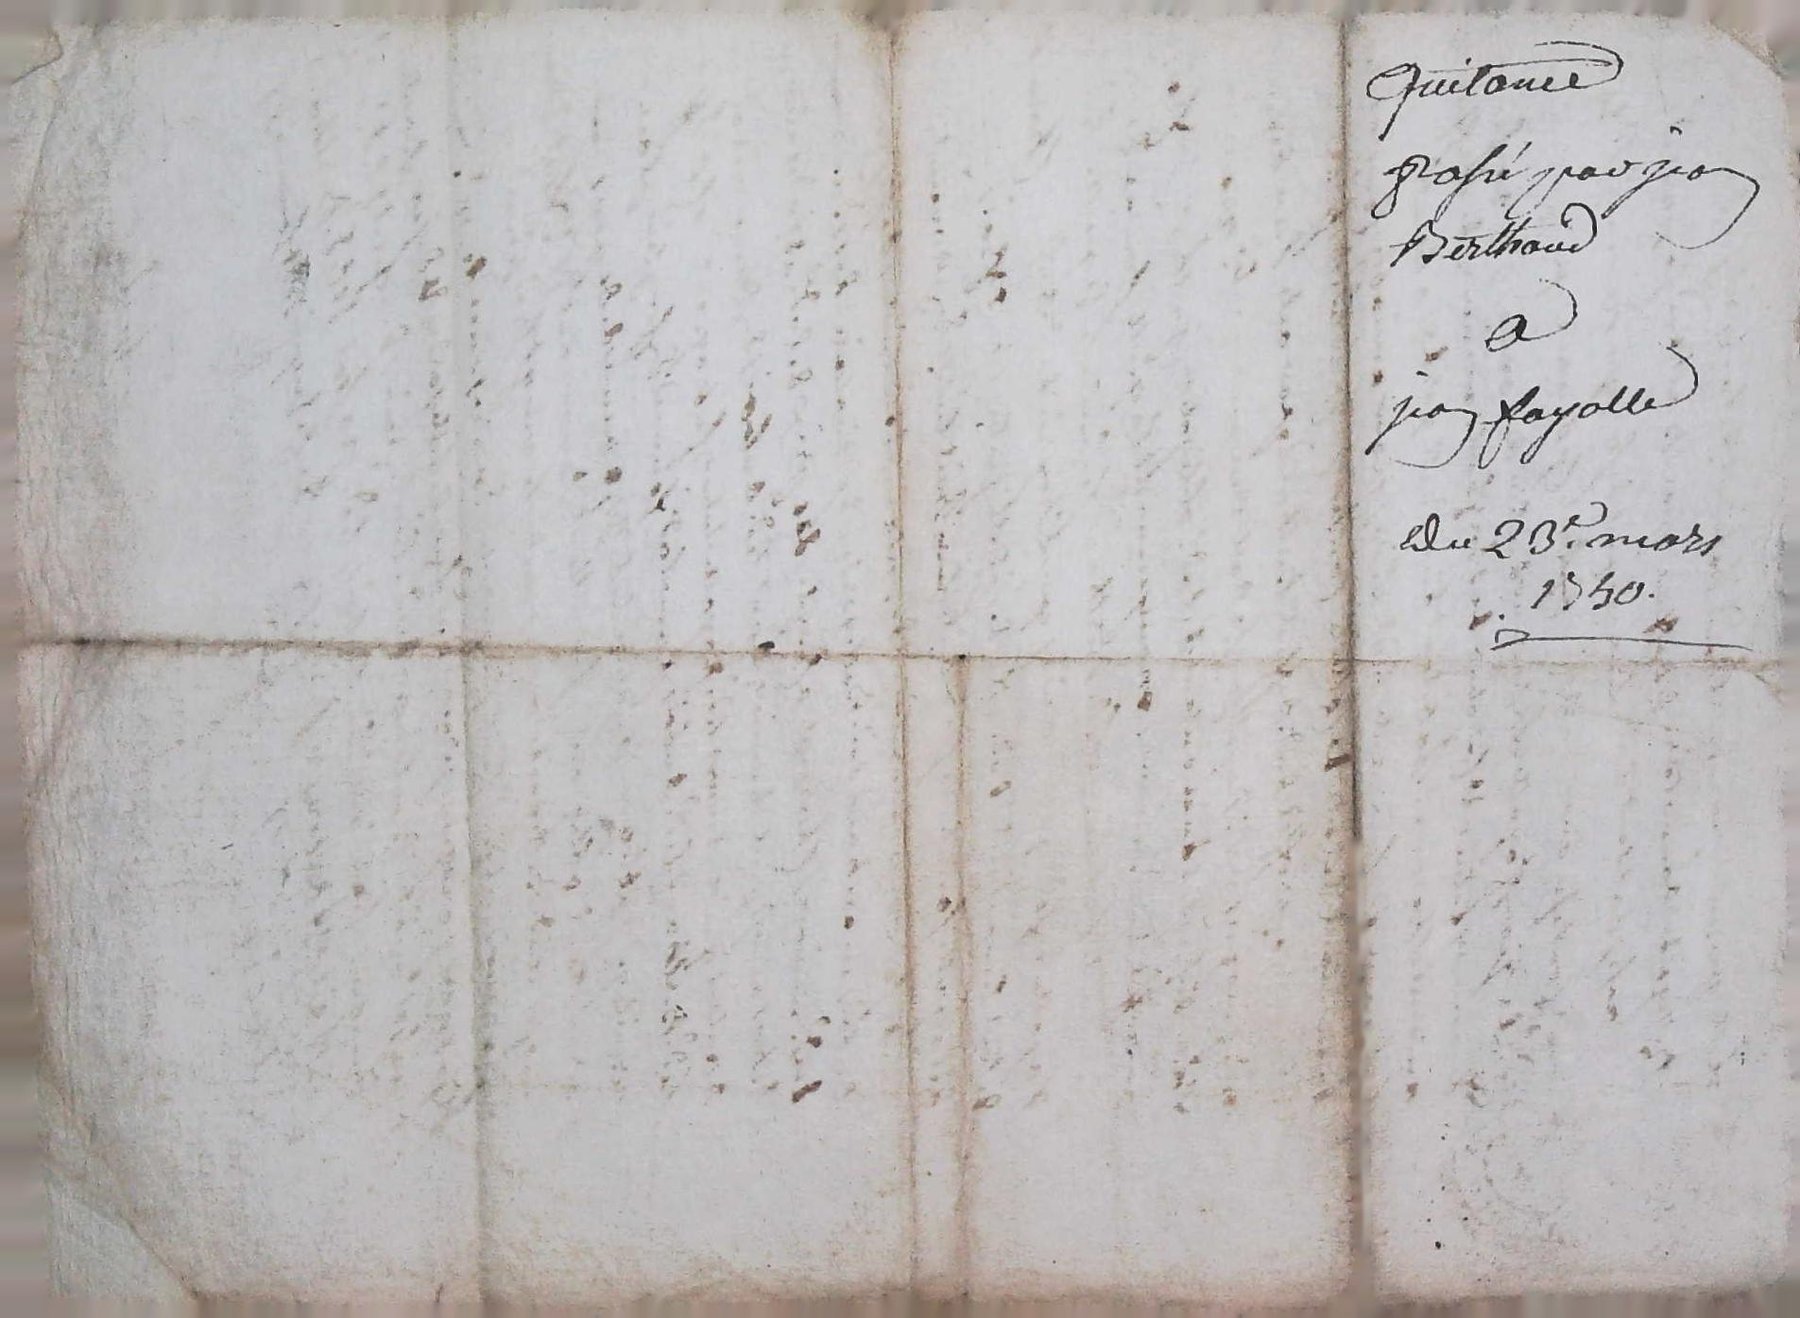 Quitance
passé par jean
Berthaud
a
jean fayolle
Du 23e. mars
1740.